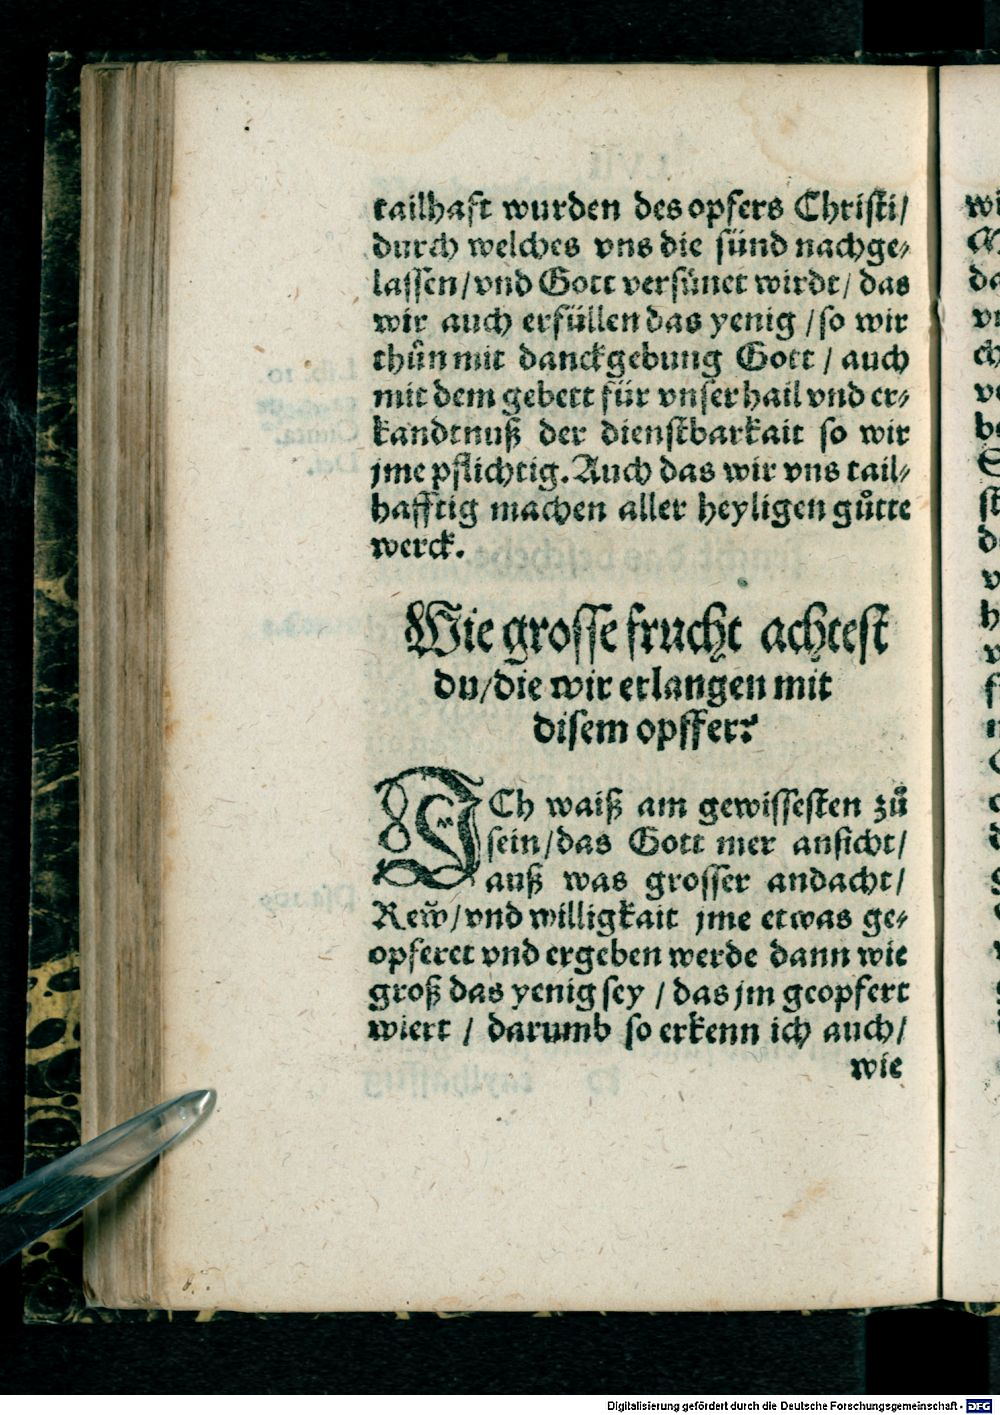 tailhaft wurden des opfers Christi/
durch welches vns die sünd nachge⸗
lassen/vnd Gott versünet wirdt/ das
wir auch erfüllen das yenig /so wir
thůn mit danckgebung Gott / auch
mit dem gebett für vnser hail vnd er⸗
kandtnuß der dienstbarkait so wir
jme pflichtig. Auch das wir vns tail⸗
hafftig machen aller heyligen gůtte
werck.
Wie grosse frucht achtest
du/die wir erlangen mit
disem opffer?
ICh waiß am gewissesten zů
sein/das Gott mer ansicht/
auß was grosser andacht/
Rew̃/vnd willigkait jme etwas ge⸗
opferet vnd ergeben werde dann wie
groß das yenig sey / das jm geopfert
wiert / darumb so erkenn ich auch/
wie
Digitalisierung gefördert durch die Deutsche Forschungsgemeinschaft - DFG